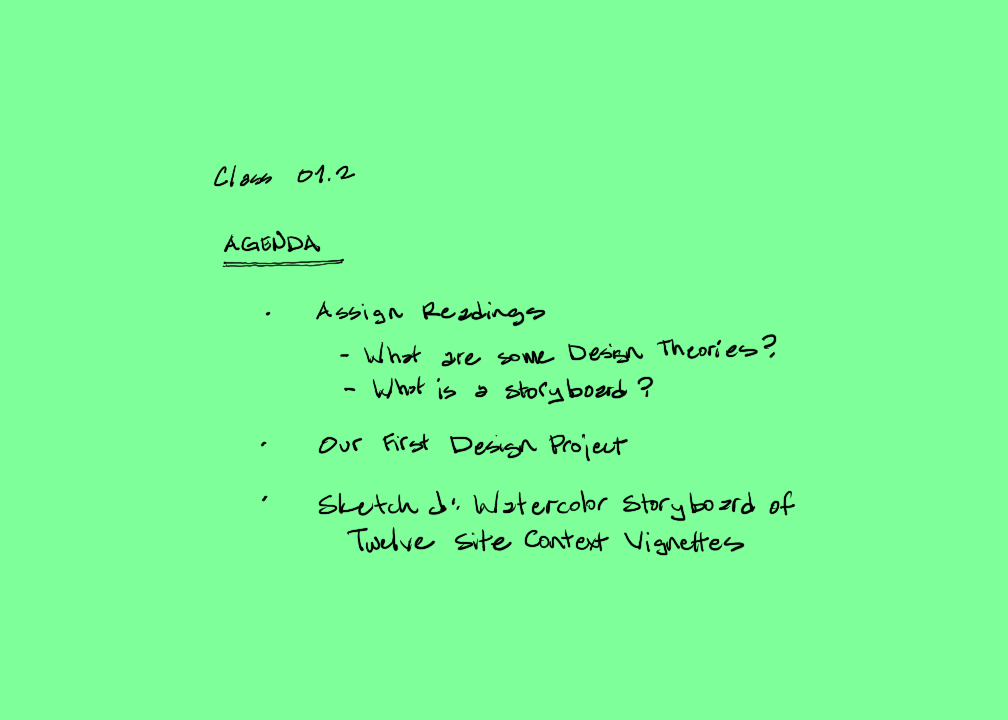 Class 01.2
AGENDA
· Assign Readings
- What are some Design Theories?
- What is a storyboard?
· Our First Design Project
· Sketch & Watercolor Storyboard of
Twelve Site Context Vignettes